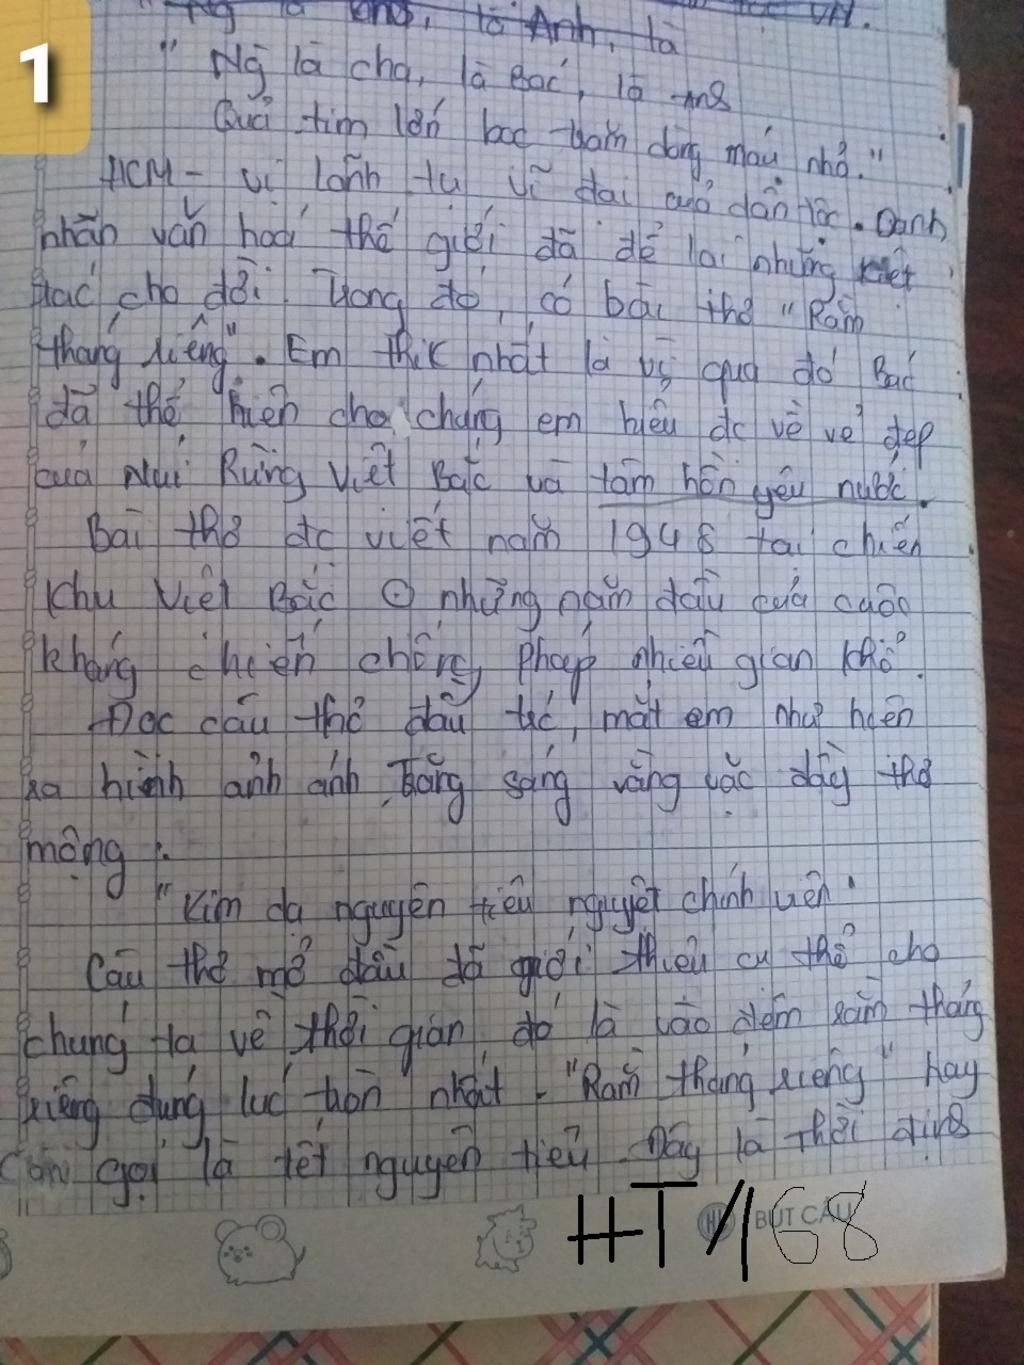 1
Ng là cha, là Anh, là
"Ng là cha, là Bác, là Anh
Quả tim lớn bọc trăm dòng máu nhỏ."
HCM - vị lãnh tụ vĩ đại của dân tộc. Danh
nhân văn hoá thế giới đã để lại những kiệt
tác cho đời. Trong đó, có bài thơ "Rằm
tháng riêng". Em thik nhất là vì qua đó Bác
đã thể hiện cho chúng em hiểu đc về vẻ đẹp
của Núi Rừng Việt Bắc và tâm hồn yêu nước.
Bài thơ đc viết năm 1948 tại chiến
khu Việt Bắc những năm đầu của cuộc
kháng chiến chống Pháp nhiều gian khổ.
Đọc câu thơ đầu tiên, mắt em như hiện
ra hình ảnh ánh trăng sáng vằng vặc đầy thơ
mộng:
"Kim dạ nguyên tiêu nguyệt chính viên"
Câu thơ mở đầu đã giới thiệu cụ thể cho
chúng ta về thời gian, đó là vào đêm rằm tháng
riêng đúng lúc tròn nhất. "Rằm tháng riêng" hay
còn gọi là tết nguyên tiêu. Đây là thời
HT/168
BÚT CÂU